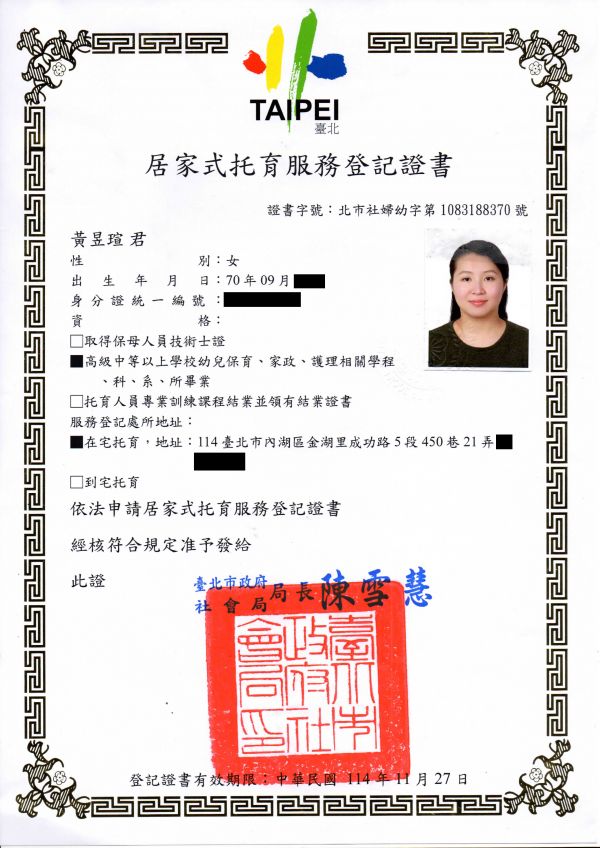 TAIPEI
臺北
居家式托育服務登記證書
證書字號：北市社婦幼字第 1083188370 號
黃昱瑄 君
性別：女
出生年月日：70 年 09 月
身分證統一編號：
資格：
□取得保母人員技術士證
■高級中等以上學校幼兒保育、家政、護理相關學程
、科、系、所畢業
□托育人員專業訓練課程結業並領有結業證書
服務登記處所地址：
■在宅托育，地址：114 臺北市內湖區金湖里成功路 5 段 450 巷 21 弄
□到宅托育
依法申請居家式托育服務登記證書
經核符合規定准予發給
此證
臺北市政府
社會局局長陳雪慧
臺北市
政府社
會局印
登記證書有效期限：中華民國 114 年 11 月 27 日